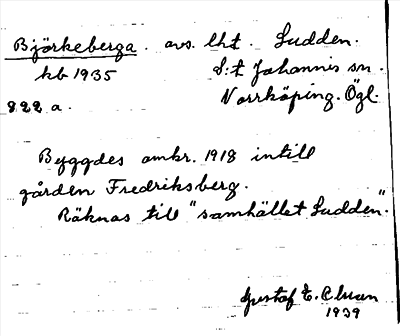 Björkeberga. avs. lht. Sudden.
kb 1935 S:t Johannis sn.
822 a. Norrköping. Ögl.
Byggdes omkr. 1918 intill
gården Fredriksberg.
Räknas till "samhället Sudden".
Gustaf E.
1939